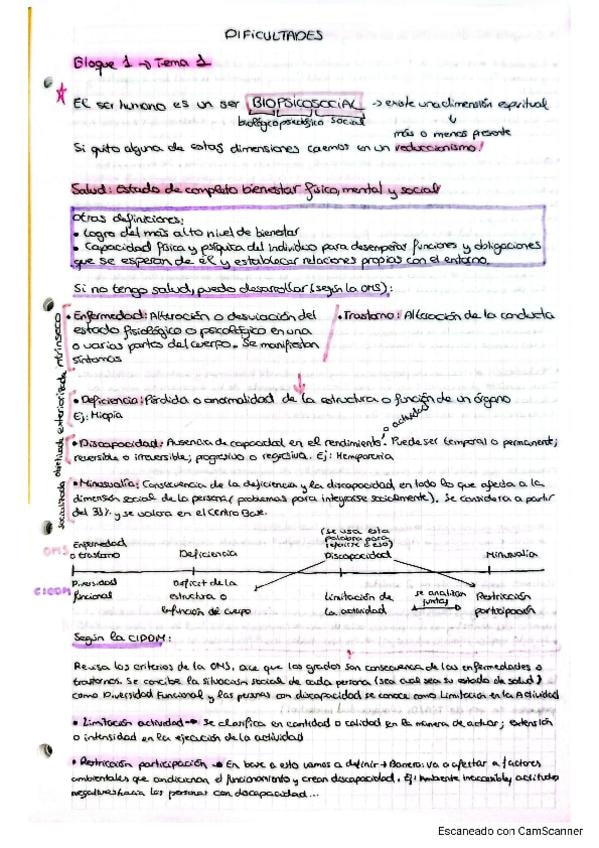 DIFICULTADES
Bloque 1 → Tema 1
El ser humano es un ser BIOPSICOSOCIAL → existe una dimensión espiritual
biológico psicológico social
más o menos presente
Si quito alguna de estas dimensiones caemos en un reduccionismo!
Salud: Estado de completo bienestar físico, mental y social
Otras definiciones:
• Logro del más alto nivel de bienestar
• Capacidad física y psíquica del individuo para desempeñar funciones y obligaciones
que se esperan de él y establecer relaciones propias con el entorno.
Si no tengo salud, puedo desarrollar (según la OMS):
• Enfermedad: Alteración o desviación del
estado fisiológico o psicológico en una
o varias partes del cuerpo. Se manifiestan
síntomas
• Trastorno: Alteración de la conducta
• Deficiencia: Pérdida o anormalidad de la estructura o función de un órgano
Ej: Miopía
o actividad
• Discapacidad: Ausencia de capacidad en el rendimiento. Puede ser temporal o permanente;
reversible o irreversible; progresivo o regresiva. Ej: Hemiparesia
• Minusvalía: Consecuencia de la deficiencia y la discapacidad en todo lo que afecta a la
dimensión social de la persona (problemas para integrarse socialmente). Se considera a partir
del 33% y se valora en el Centro Base.
intrínseco
exteriorizada
objetivada
socializada
(se usa esta
palabra para
referirse a eso)
OMS
Enfermedad
o trastorno
Deficiencia
Discapacidad
Minusvalía
CIDDM
Diversidad
funcional
Déficit de la
estructura o
función de cuerpo
Limitación de
la actividad
se analizan
juntas
Restricción
participación
Según la CIDDM:
Revisa los criterios de la OMS, dice que los grados son consecuencia de las enfermedades o
trastornos. Se concibe la situación social de cada persona (sea cual sea su estado de salud)
como Diversidad Funcional y las personas con discapacidad se conoce como Limitación en la Actividad
• Limitación actividad → Se clasifica en cantidad o calidad en la manera de actuar; extensión
o intensidad en la ejecución de la actividad
• Restricción participación → En base a esto vamos a definir → Barrera: va a afectar a factores
ambientales que condicionan el funcionamiento y crean discapacidad. Ej: Ambiente inaccesible, actitudes
negativas hacia las personas con discapacidad...
Escaneado con CamScanner